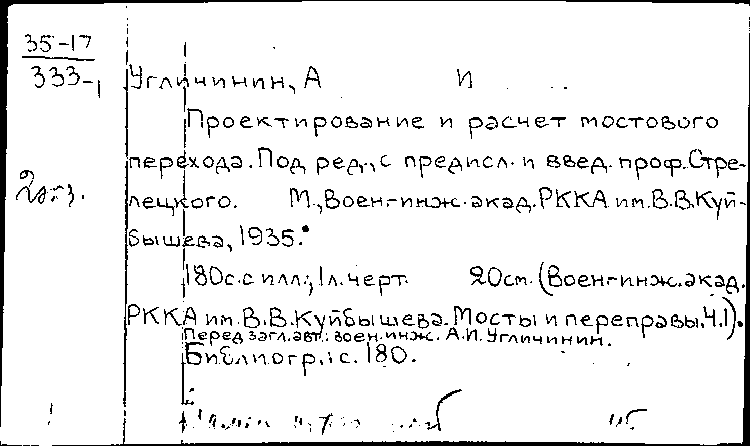 35-17
333-1
Угличинин, А И
Проектирование и расчет мостового
перехода. Под ред., с предисл. и введ. проф. Стре-
2 экз.
лецкого. М., Воен-инж. акад. РККА им. В.В. Куй-
бышева, 1935.
180с. с илл.; 1л. черт. 20см. (Воен-инж. акад.
РККА им. В.В. Куйбышева. Мосты и переправы. Ч.1).
Перед загл. авт.: воен. инж. А.И. Угличинин.
Библиогр.: с. 180.